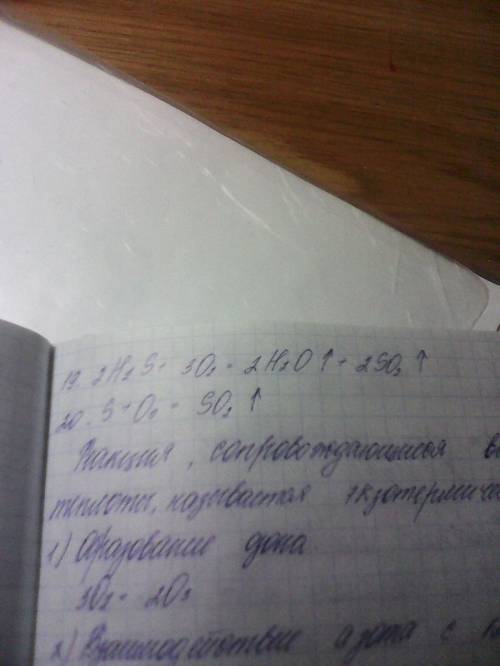 19. 2H₂S + 3O₂ = 2H₂O ↑ + 2SO₂ ↑
20. S + O₂ = SO₂ ↑
Реакция, сопровождающиеся
теплоты, называется экзотермичес
1) Образование
3O₂ = 2O₃
2) Взаимодействие азота с